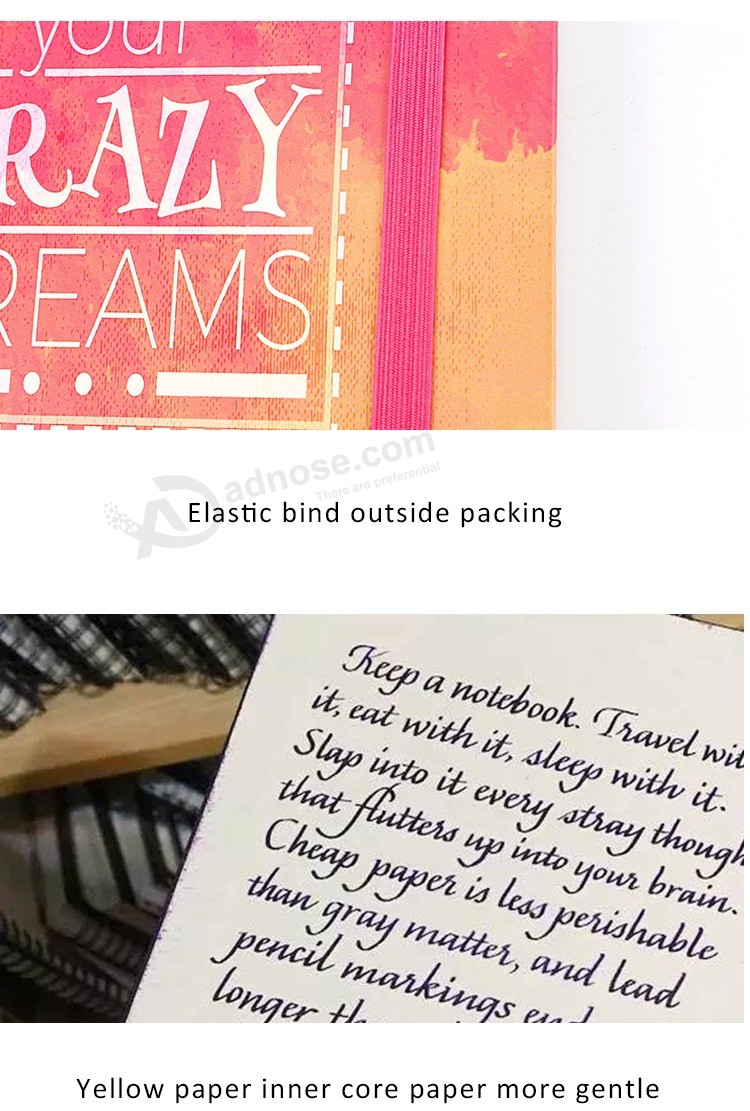 your
RAZY
REAMS
adnose.com
There are preferential
Elastic bind outside packing
Keep a notebook. Travel wit
it, eat with it, sleep with it.
Slap into it every stray though
that flutters up into your brain.
Cheap paper is less perishable
than gray matter, and lead
pencil markings end
longer th
Yellow paper inner core paper more gentle